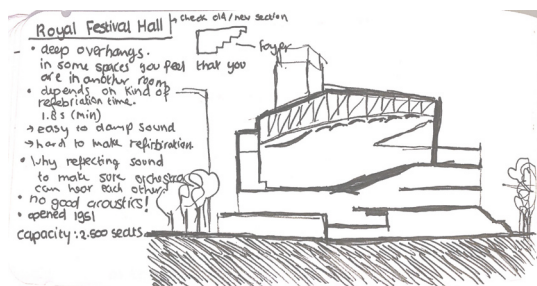 Royal Festival Hall
→ check old/new section
foyer
• deep overhangs.
in some spaces you feel that you
are in another room
• depends on kind of
refebriation time.
1.8 s (min)
→ easy to damp sound
→ hard to make refirbiration
• Why reflecting sound
to make sure orchestra
can hear each other?
• no good acoustics!
• opened 1951
capacity: 2.500 seats